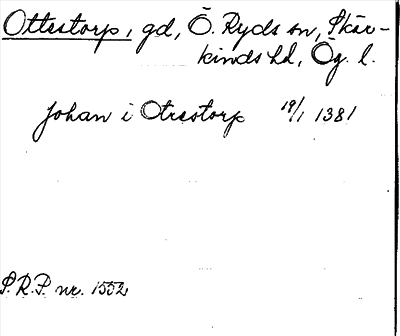 Ottestorp, gd, Ö. Ryds sn, Skär-
kinds hd, Ög. l.
Johan i Otrastorp 19/1 1381
S.R.P. nr. 1552